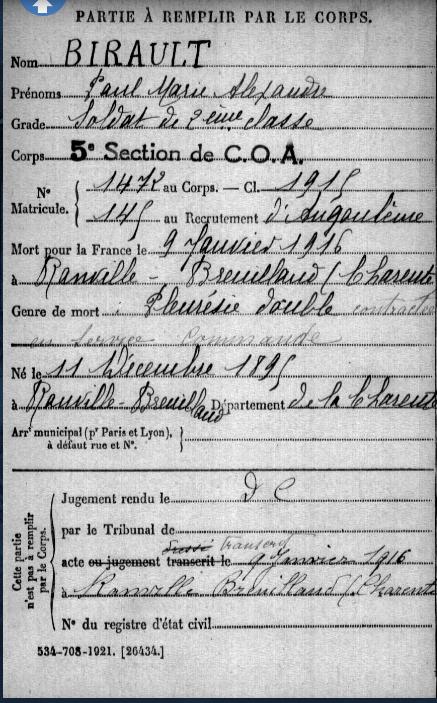 PARTIE À REMPLIR PAR LE CORPS.
Nom BIRAULT
Prénoms Paul Marie Alexandre
Grade Soldat de 2ème classe
Corps 5e Section de C.O.A.
N° Matricule. { 1472 au Corps. — Cl. 1915
145 au Recrutement d'Angoulême
Mort pour la France le 9 Janvier 1916
à Ranville - Breuillaud (Charente
Genre de mort Pleurésie double contractée
en service commandé
Né le 11 Décembre 1895
à Ranville-Breuillaud Département de la Charente
Arrt municipal (pr Paris et Lyon), à défaut rue et N°.
Cette partie n'est pas à remplir par le Corps.
Jugement rendu le D C
par le Tribunal de
dressé transcrit
acte ou jugement transcrit le 9 Janvier 1916
à Ranville Breuillaud (Charente
N° du registre d'état civil
534-708-1921. [26434.]